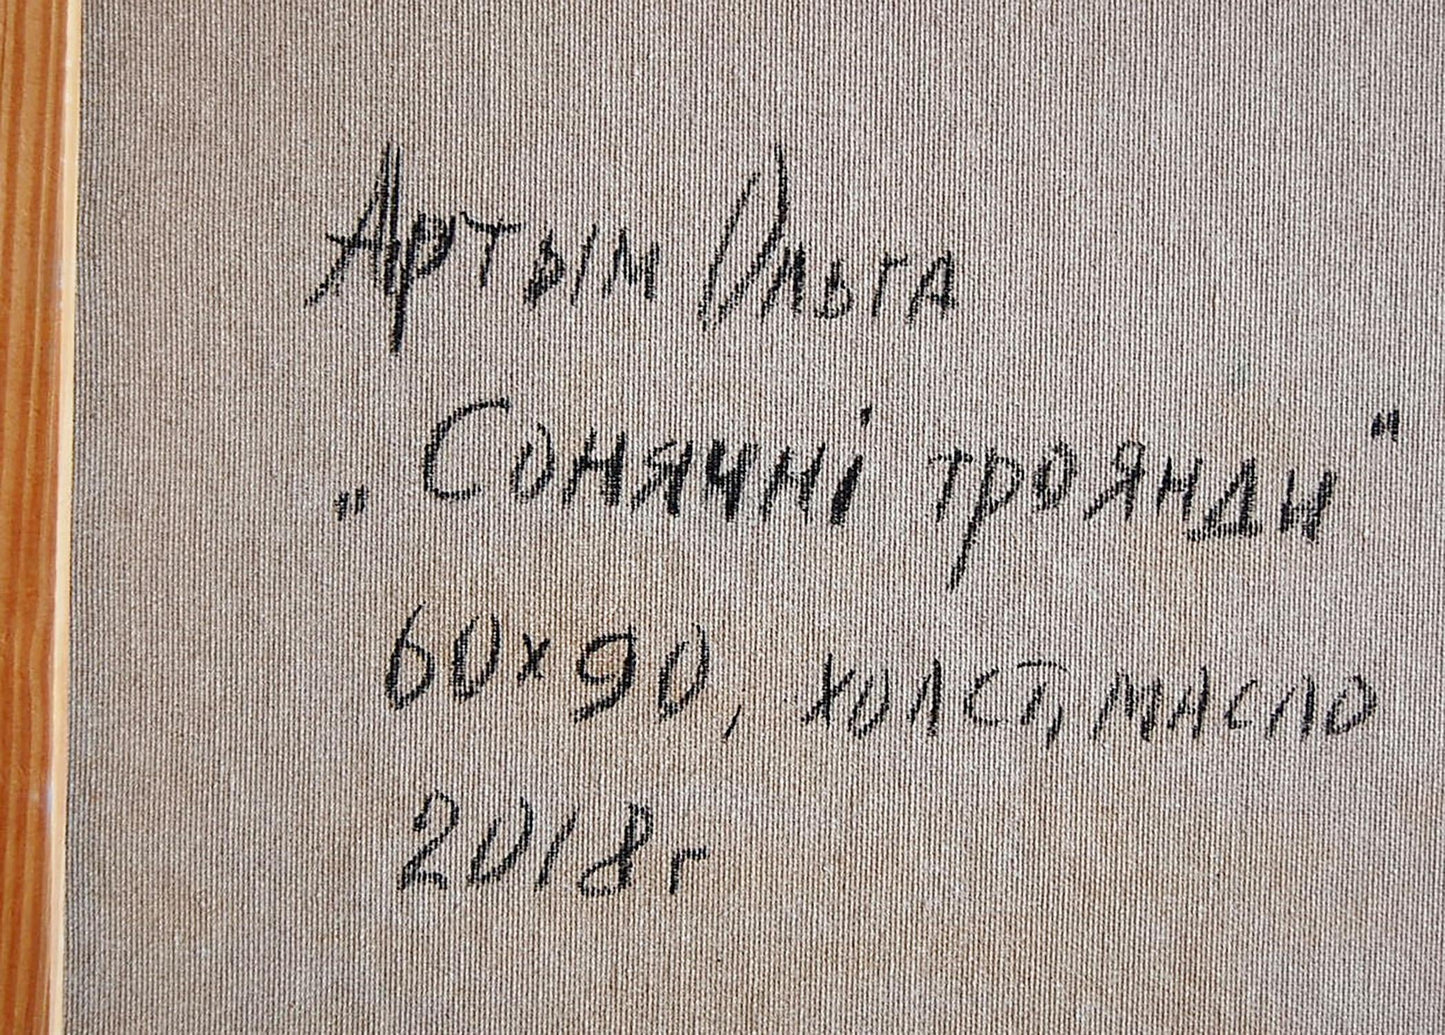 Артым Ольга
„Сонячні троянди"
60×90, холст, масло
2018г